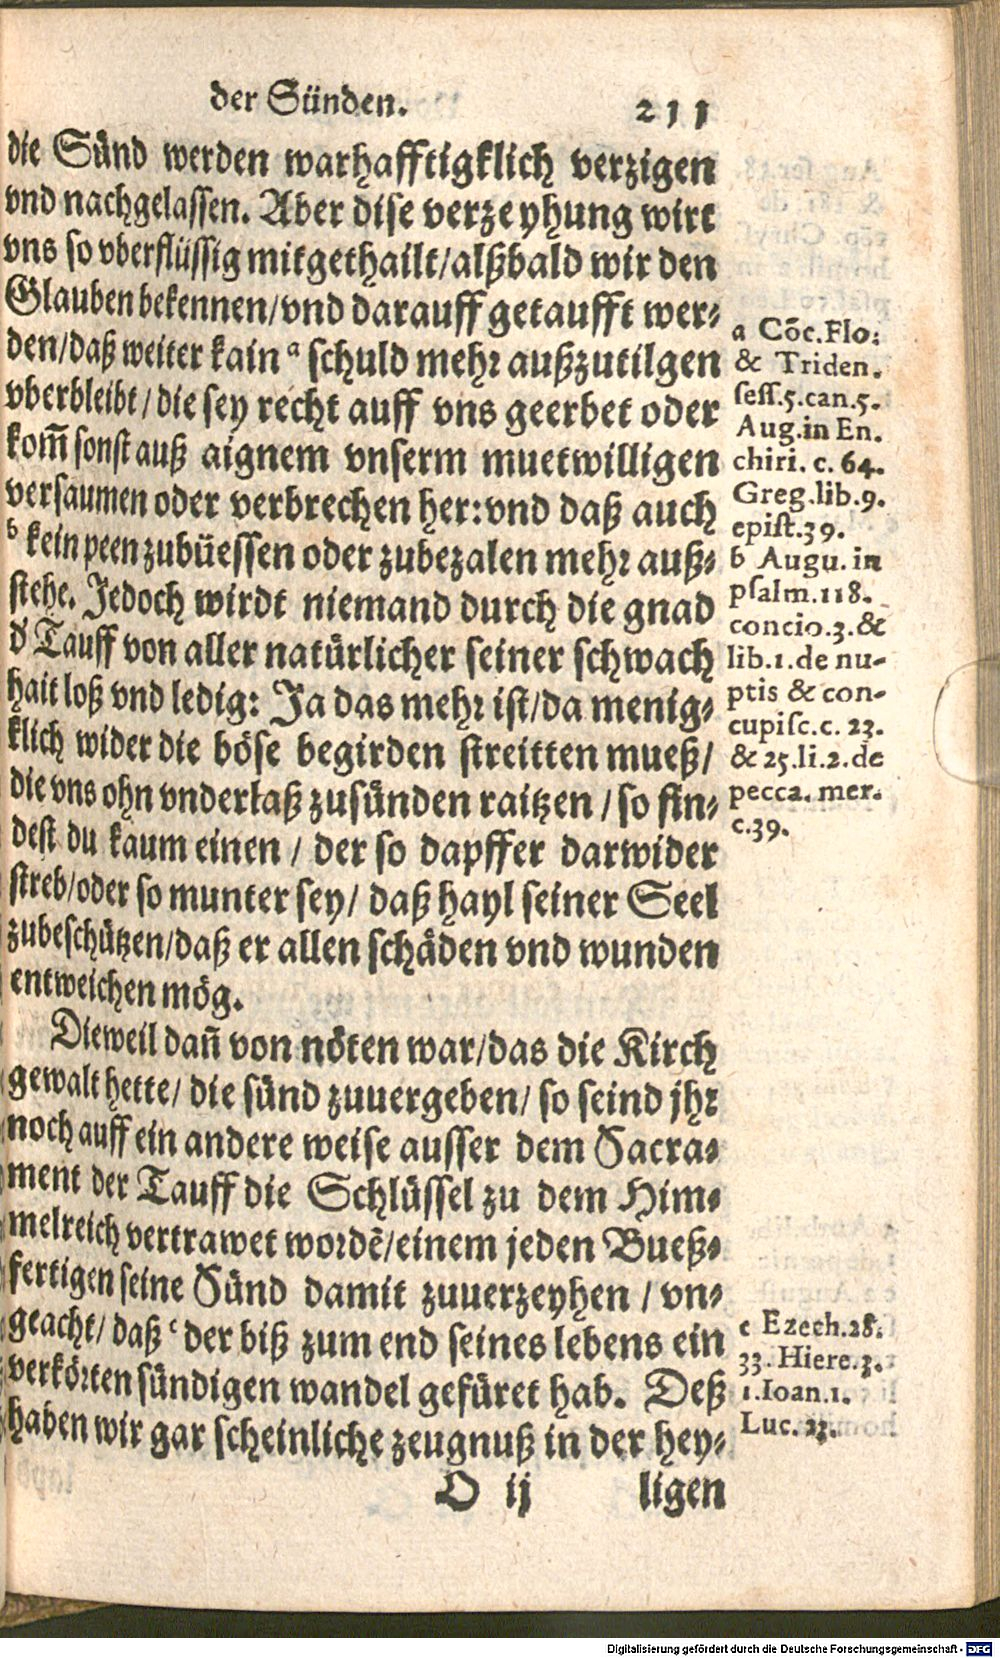 der Sünden. 211
die Sünd werden warhafftigklich verzigen
vnd nachgelassen. Aber dise verzeyhung wirt
vns so vberflüssig mitgethailt/alßbald wir den
Glauben bekennen/vnd darauff getaufft wer-
den/daß weiter kain a schuld mehr außzutilgen
vberbleibt/die sey recht auff vns geerbet oder
kom̃ sonst auß aignem vnserm muetwilligen
versaumen oder verbrechen her: vnd daß auch
b kein peen zubüessen oder zubezalen mehr auß-
stehe. Jedoch wirdt niemand durch die gnad
d' Tauff von aller natürlicher seiner schwach
hait loß vnd ledig: Ja das mehr ist/da menig-
klich wider die böse begirden streitten mueß/
die vns ohn vnderlaß zusünden raitzen/so fin-
dest du kaum einen/ der so dapffer darwider
streb/oder so munter sey/ daß hayl seiner Seel
zubeschützen/daß er allen schäden vnd wunden
entweichen mög.
Dieweil dañ von nöten war/das die Kirch
gewalt hette/ die sünd zuuergeben/ so seind jhr
noch auff ein andere weise ausser dem Sacra-
ment der Tauff die Schlüssel zu dem Him-
melreich vertrawet wordẽ/einem jeden Bueß-
fertigen seine Sünd damit zuuerzeyhen/ vn-
geacht/ daß c der biß zum end seines lebens ein
verkörten sündigen wandel gefüret hab. Deß
haben wir gar scheinliche zeugnuß in der hey-
O ij ligen
a Cõc.Flo:
& Triden.
sess.5.can.5.
Aug.in En.
chiri. c. 64.
Greg.lib.9.
epist.39.
b Augu. in
psalm.118.
concio.3.&
lib.1.de nu-
ptis & con-
cupisc.c. 23.
& 25.li.2.de
pecca. mer.
c.39.
c Ezech.28.
33. Hiere.3.
1.Ioan.1.
Luc. 23.
Digitalisierung gefördert durch die Deutsche Forschungsgemeinschaft - DFG